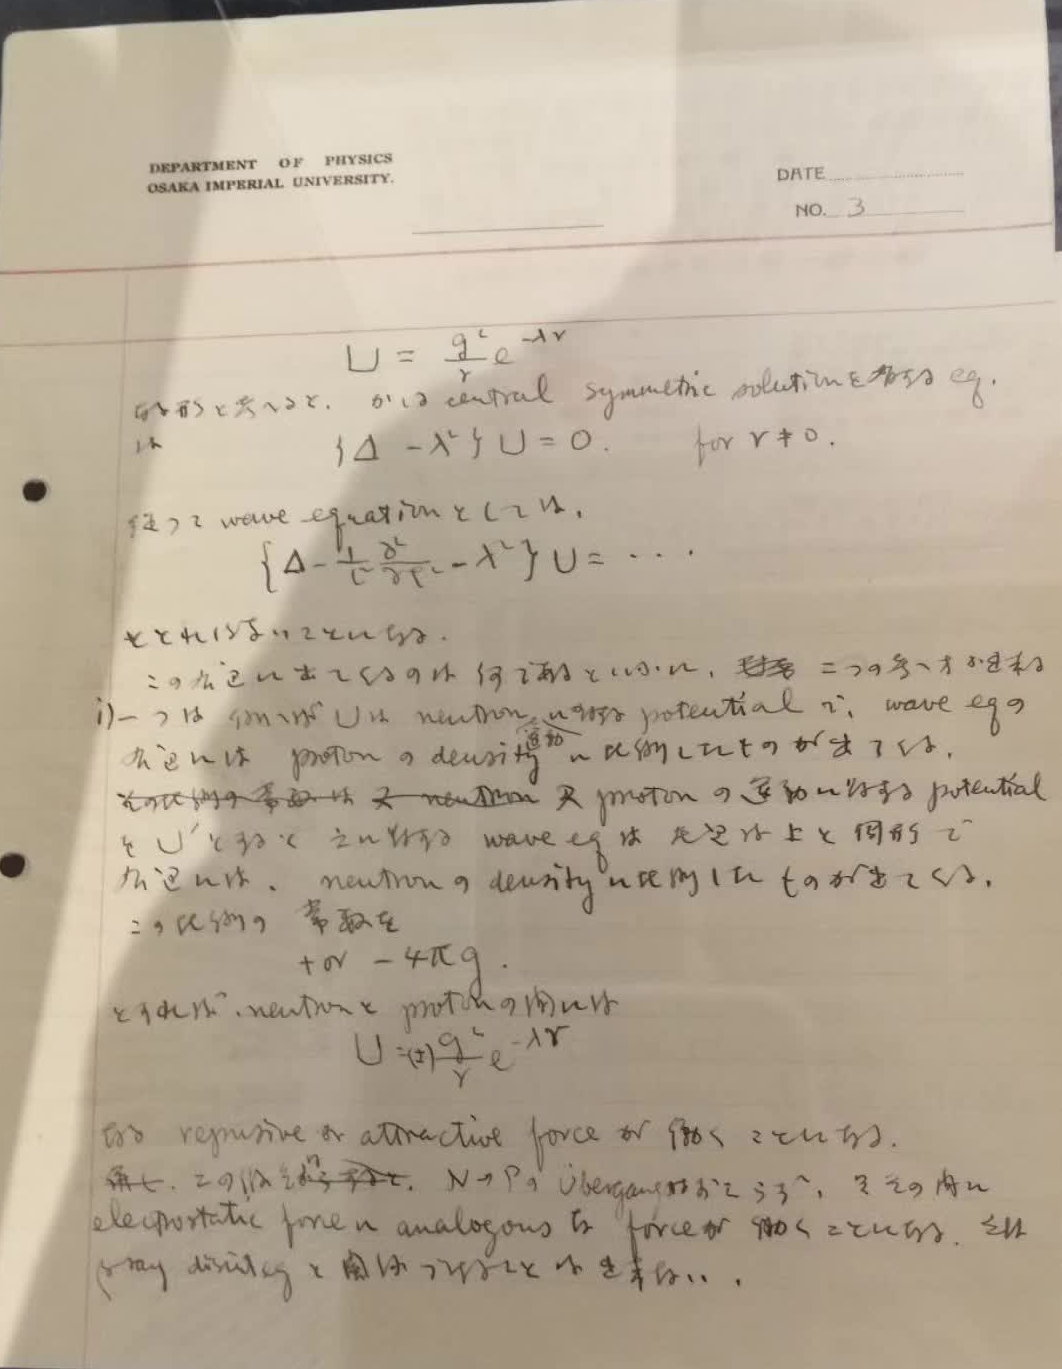 DEPARTMENT OF PHYSICS
OSAKA IMPERIAL UNIVERSITY.
DATE
NO. 3
U = g²/r e^{-λr}
なる形と考へると、かかる central symmetric solution を有する eq.
は {Δ - λ²} U = 0. for r ≠ 0.
従つて wave equation としては、
{Δ - 1/c² ∂²/∂t² - λ²} U = ....
をとればよいことになる.
この右辺に出てくるのは何であるといふに、二つの考へ方が出来る
i) 一つは 例へば U は neutron に対する potential で、wave eq の
右辺には proton の density 運動 に比例したものが出てくる.
その比例の常数は 又 neutron 又 proton の運動に対する potential
を U′ とすると 之に対する wave eq は 左辺は上と同形で
右辺には、neutron の density に比例したものが出てくる.
この比例の常数を
+ or - 4πg.
とすれば、neutron と proton の間には
U = (±) g²/r e^{-λr}
なる repulsive or attractive force が働くことになる.
この N→P の Übergang はおこらず、その間に
electrostatic force に analogous な force が働くことになる.
β-ray disinteg と は出来ない.